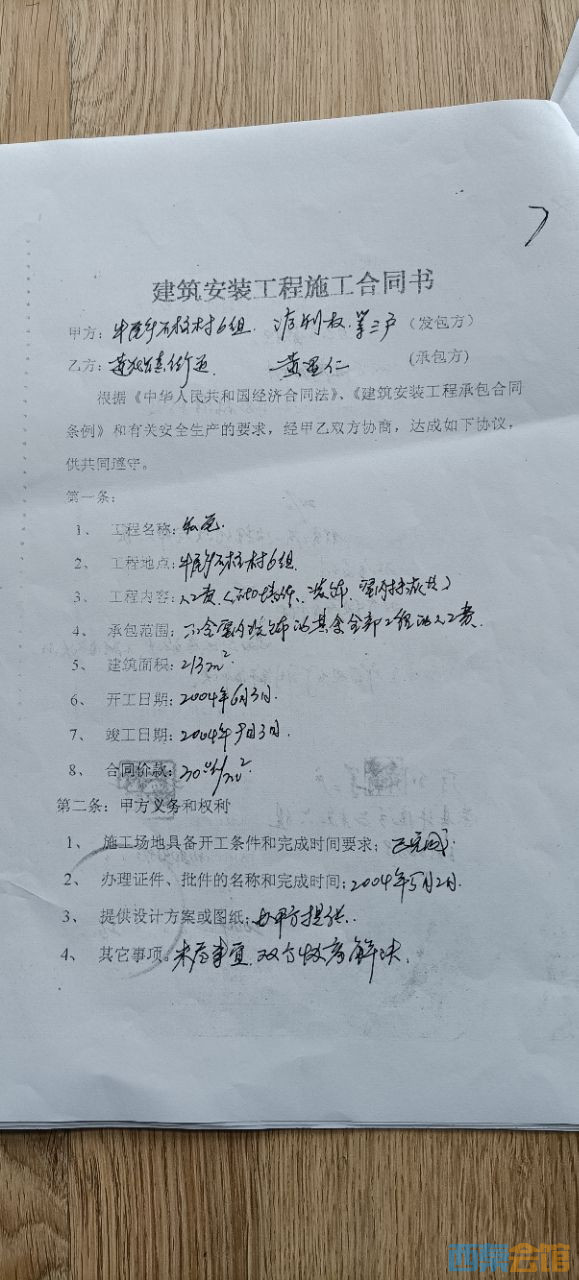 建筑安装工程施工合同书
甲方：牛民乡石柱村6组 等三户（发包方）
乙方： 黄 仁 (承包方)
根据《中华人民共和国经济合同法》、《建筑安装工程承包合同
条例》和有关安全生产的要求，经甲乙双方协商，达成如下协议，
供共同遵守。
第一条：
1、 工程名称：
2、 工程地点：牛民乡石柱村6组
3、 工程内容：人工费（ 装饰、室内 ）
4、 承包范围：不含室内装饰的其余全部工程的人工费
5、 建筑面积：213m²
6、 开工日期：2004年6月3日
7、 竣工日期：2004年 月3日
8、 合同价款： /m²
第二条：甲方义务和权利
1、 施工场地具备开工条件和完成时间要求：已完成
2、 办理证件、批件的名称和完成时间：2004年5月2日
3、 提供设计方案或图纸：由甲方提供
4、 其它事项：未尽事宜，双方 解决
西京会馆